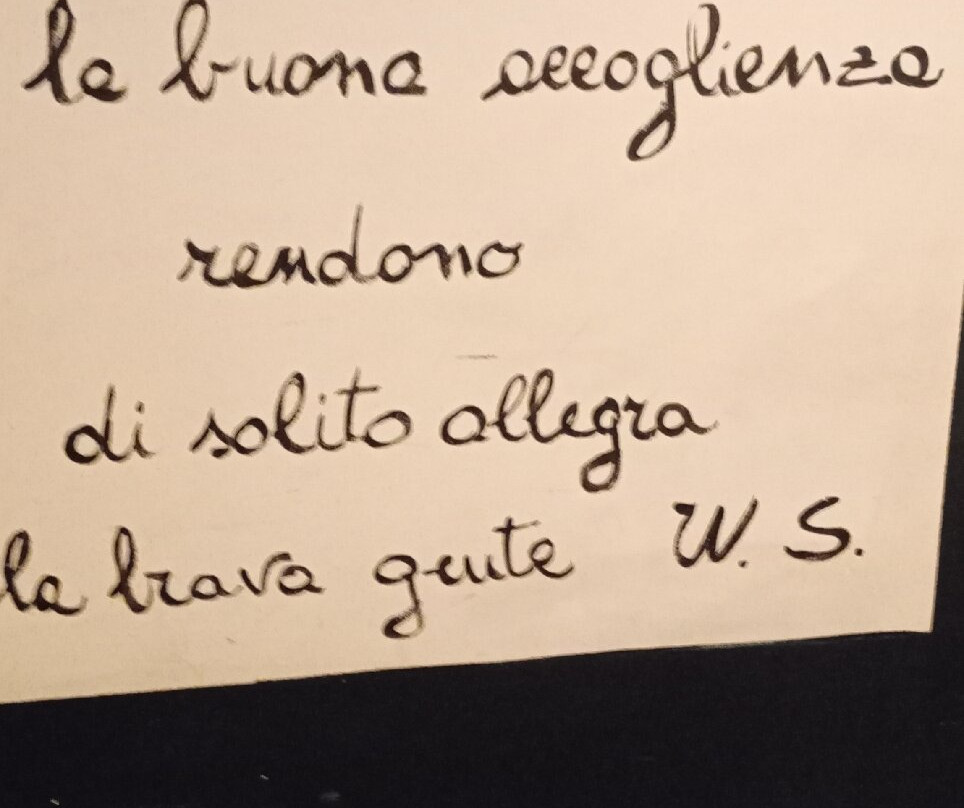 la buona accoglienza
rendono
di solito allegra
la brava gente W. S.